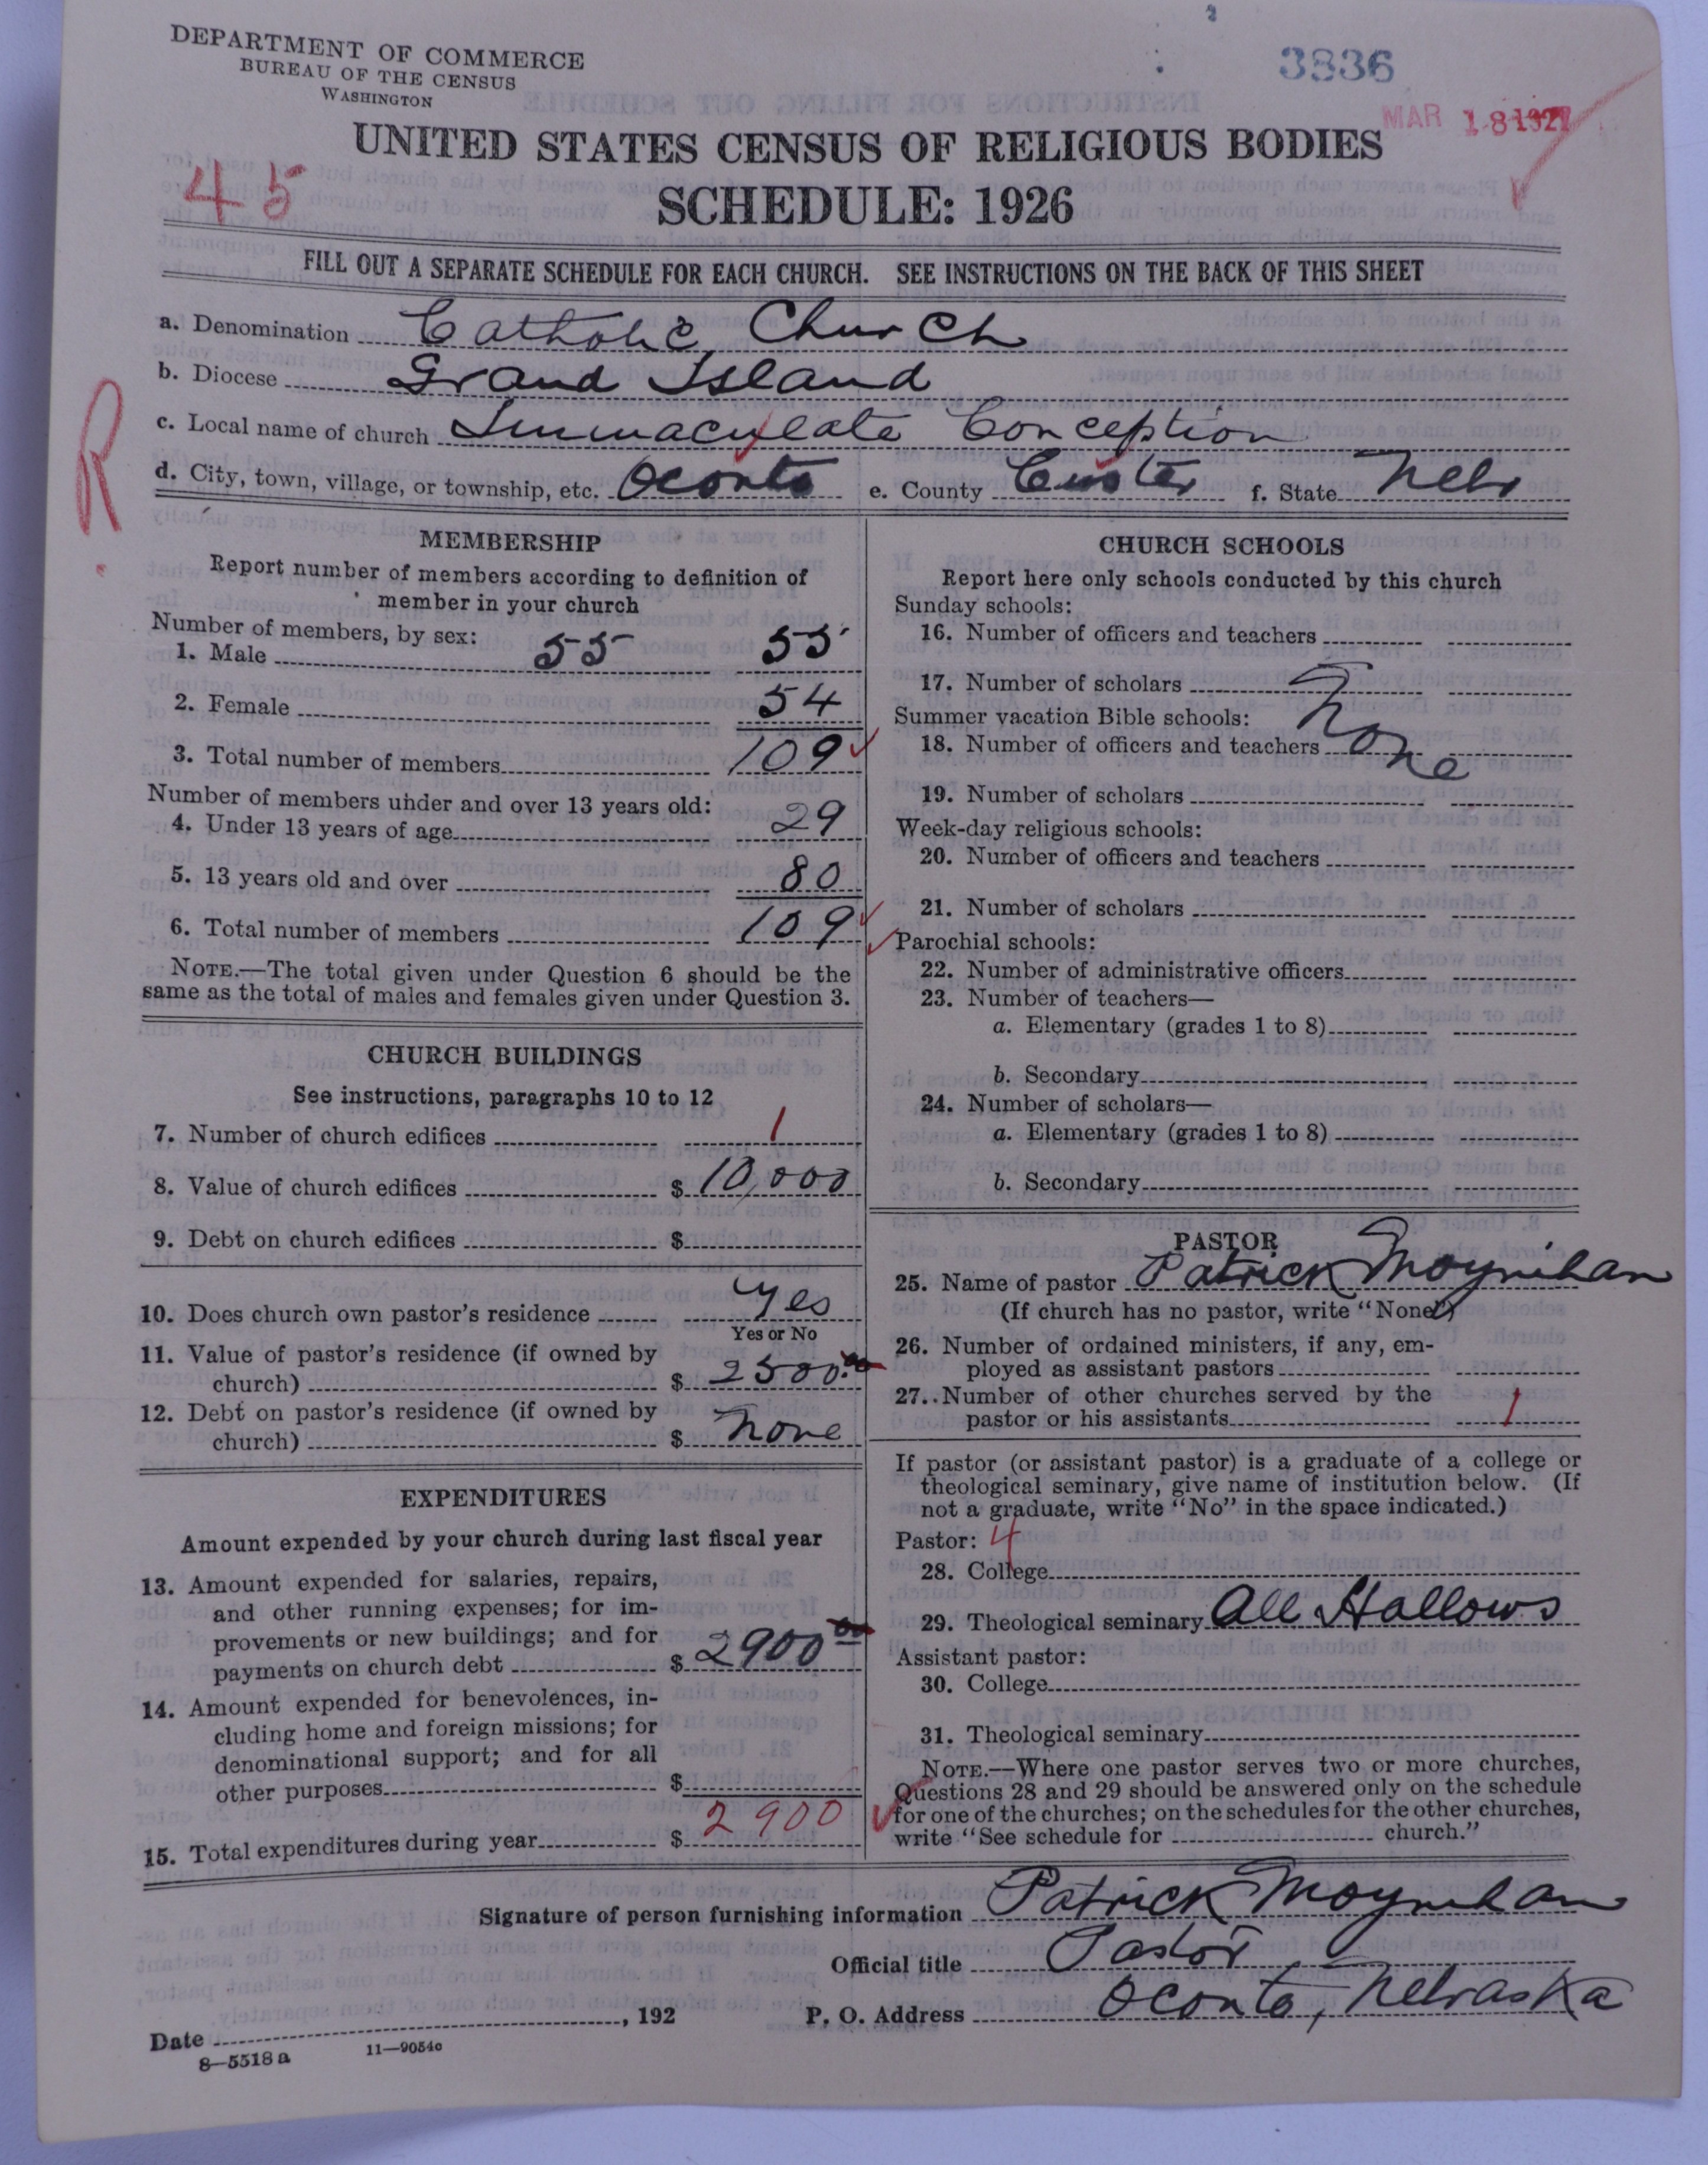 DEPARTMENT OF COMMERCE
BUREAU OF THE CENSUS
WASHINGTON
3836
MAR 18 1927
UNITED STATES CENSUS OF RELIGIOUS BODIES
45
SCHEDULE: 1926
FILL OUT A SEPARATE SCHEDULE FOR EACH CHURCH. SEE INSTRUCTIONS ON THE BACK OF THIS SHEET
a. Denomination Catholic Church
b. Diocese Grand Island
R
c. Local name of church Immaculate Conception
d. City, town, village, or township, etc. Oconto e. County Custer f. State Nebr
MEMBERSHIP
Report number of members according to definition of
member in your church
Number of members, by sex:
1. Male 55 55
2. Female 54
3. Total number of members 109
Number of members under and over 13 years old:
4. Under 13 years of age 29
5. 13 years old and over 80
6. Total number of members 109
NOTE.—The total given under Question 6 should be the
same as the total of males and females given under Question 3.
CHURCH BUILDINGS
See instructions, paragraphs 10 to 12
7. Number of church edifices 1
8. Value of church edifices $ 10,000
9. Debt on church edifices $
10. Does church own pastor's residence yes
Yes or No
11. Value of pastor's residence (if owned by
church) $ 2500.00
12. Debt on pastor's residence (if owned by
church) $ none
EXPENDITURES
Amount expended by your church during last fiscal year
13. Amount expended for salaries, repairs,
and other running expenses; for im-
provements or new buildings; and for
payments on church debt $ 2900 00
14. Amount expended for benevolences, in-
cluding home and foreign missions; for
denominational support; and for all
other purposes $
15. Total expenditures during year $ 2900
CHURCH SCHOOLS
Report here only schools conducted by this church
Sunday schools:
16. Number of officers and teachers
17. Number of scholars
Summer vacation Bible schools:
None
18. Number of officers and teachers
19. Number of scholars
Week-day religious schools:
20. Number of officers and teachers
21. Number of scholars
Parochial schools:
22. Number of administrative officers
23. Number of teachers—
a. Elementary (grades 1 to 8)
b. Secondary
24. Number of scholars—
a. Elementary (grades 1 to 8)
b. Secondary
PASTOR
25. Name of pastor Patrick Moynihan
(If church has no pastor, write "None")
26. Number of ordained ministers, if any, em-
ployed as assistant pastors
27. Number of other churches served by the
pastor or his assistants 1
If pastor (or assistant pastor) is a graduate of a college or
theological seminary, give name of institution below. (If
not a graduate, write "No" in the space indicated.)
Pastor: 4
28. College
29. Theological seminary All Hallows
Assistant pastor:
30. College
31. Theological seminary
NOTE.—Where one pastor serves two or more churches,
Questions 28 and 29 should be answered only on the schedule
for one of the churches; on the schedules for the other churches,
write "See schedule for church."
Signature of person furnishing information Patrick Moynihan
Official title Pastor
Date , 192 P. O. Address Oconto, Nebraska
8—5518 a 11—9054c